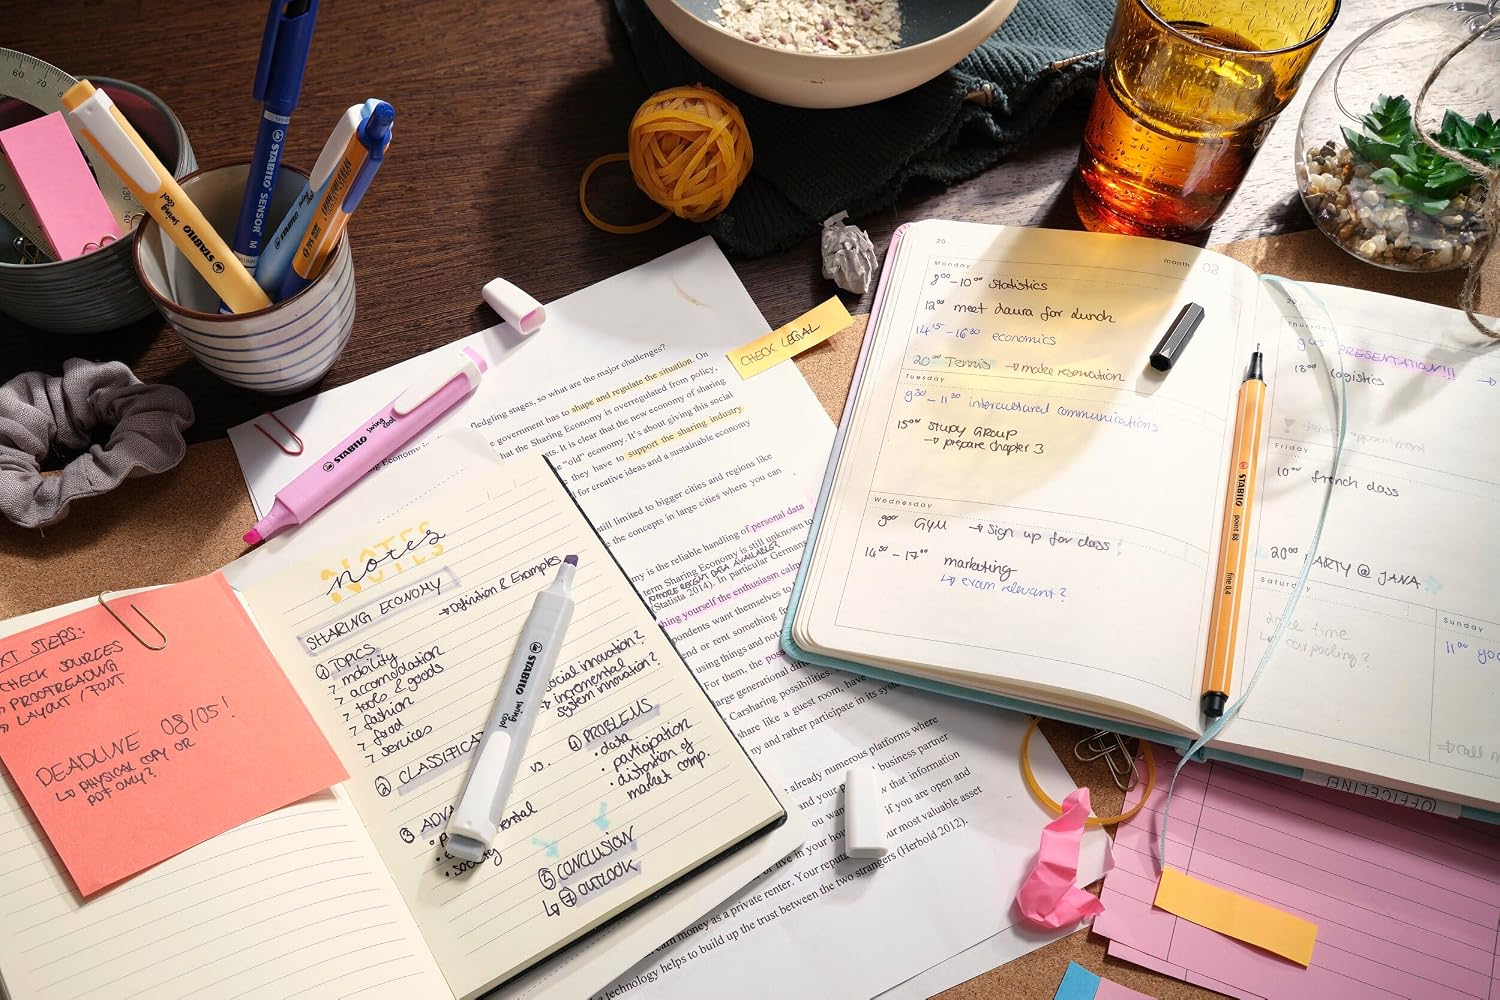 STABILO swing cool
STABILO SENSOR M
STABILO
STABILO swing cool
fledgling stages, so what are the major challenges?
government has to shape and regulate the situation. On
that the Sharing Economy is overregulated from policy,
It is clear that the new economy of sharing
"old" economy. It's about giving this social
they have to support the sharing industry
for creative ideas and a sustainable economy
still limited to bigger cities and regions like
the concepts in large cities where you can
is the reliable handling of personal data
term Sharing Economy is still unknown to
MORE RECENT DATA AVAILABLE?
(Statista 2014). In particular Germans
thing yourself the enthusiasm calm
want themselves to
or rent something
using things and not
For them, the
large generational
Carsharing possibilities.
share like a guest room, have
and rather participate in its
already numerous platforms where
and your business partner
that information
if you are open and
in your most valuable asset
or live in your
earn money as a private renter. Your
technology helps to build up the trust between the two strangers (Herbold 2012).
CHECK LEGAL
NOTES
notes
SHARING ECONOMY
→ Definition & Examples
① TOPICS
7 mobility
7 accomodation
7 tools & goods
7 fashion
7 food
7 services
② CLASSIFICAT
social innovation?
incremental
system innovation?
vs.
③ ADVA
society
④ PROBLEMS
• data
• participation
• distortion of
market comp.
⑤ CONCLUSION
OUTLOOK
STABILO swing cool
NEXT STEPS:
CHECK SOURCES
PROOFREADING
LAYOUT / FONT
DEADLINE 08/05!
↳ PHYSICAL COPY OR
PDF ONLY?
20
month 08
Monday
8⁰⁰-10⁰⁰ Statistics
12⁰⁰ meet Laura for lunch
14¹⁵-16⁰⁰ economics
20⁰⁰ Tennis → make reservation
Tuesday
9³⁰-11³⁰ intercultured communications
15⁰⁰ STUDY GROUP
→ prepare chapter 3
Wednesday
9⁰⁰ GYM → sign up for class!
14³⁰-17⁰⁰ marketing
↳ exam relevant?
STABILO point 88 fine 0,4
20
Thursday
9⁴⁵ PRESENTATION!!!
13⁰⁰ Logistics
Friday
10⁰⁰ french class
20⁰⁰ PARTY @ JANA
Saturday
time
↳ carpooling?
Sunday
11⁰⁰